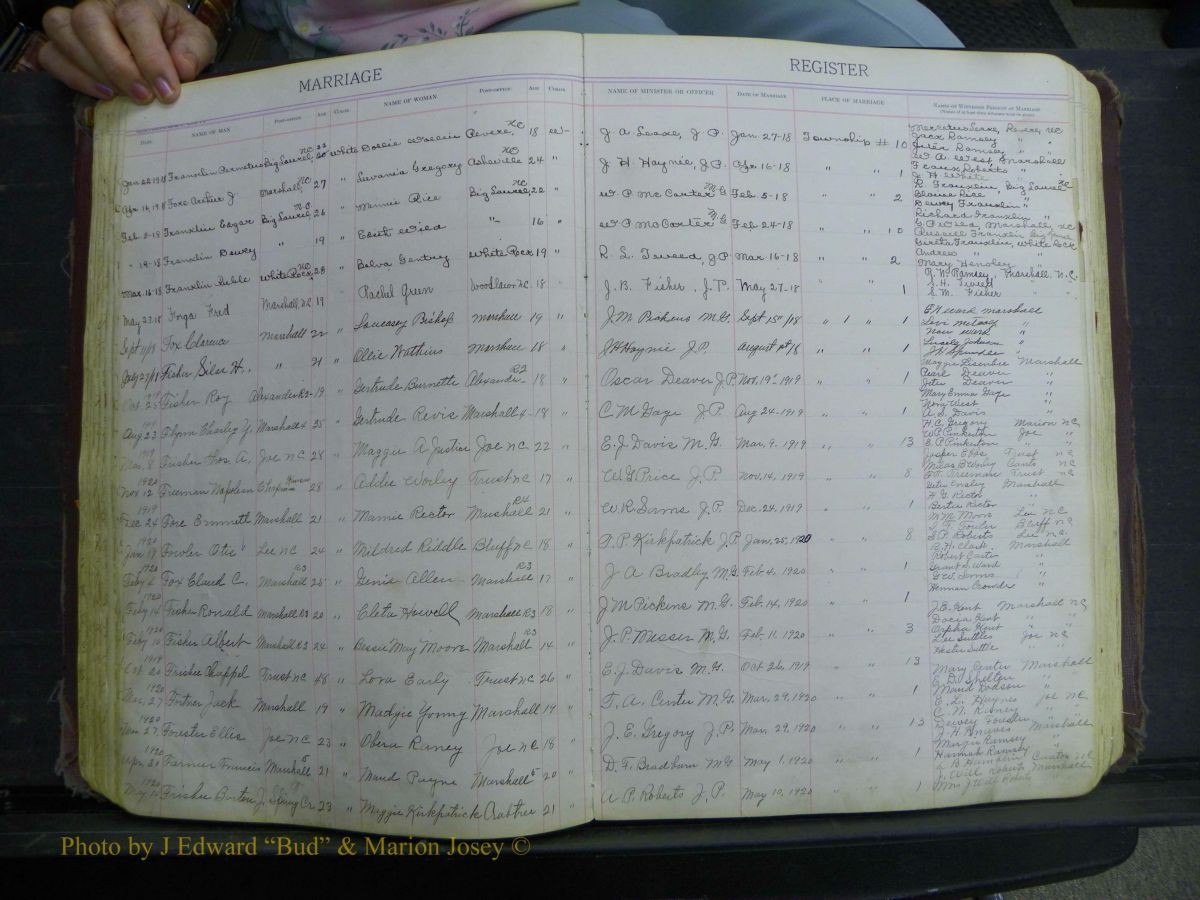 MARRIAGE REGISTER
DATE NAME OF MAN POST-OFFICE AGE COLOR NAME OF WOMAN POST-OFFICE AGE COLOR NAME OF MINISTER OR OFFICER DATE OF MARRIAGE PLACE OF MARRIAGE NAMES OF WITNESSES PRESENT AT MARRIAGE
Jan 22 1918 Franklin Big Laurel, NC 22 White Dollie Wallin Revere, NC 18 J. A. Leake, J. P. Jan. 27-18 Township # 10 Revere, NC
Jack Ramsey " "
Ramsey " "
Apr. 16, 1918 Fore Arthur J. Marshall, NC 27 " Luvania Gregory Asheville NC 24 " J. H. Haynie, J.P. Apr 16-18 " " 1 W. A. West, Marshall
Roberts "
J. H. White "
Feb. 2-18 Franklin Edgar Big Laurel, NC 26 " Mamie Rice Big Laurel, NC 22 " W. P. McCarter M.G. Feb 5-18 " " 2 R. Franklin, Big Laurel NC
Rice "
Dewey Franklin "
" 19-18 Franklin Dewey " 19 " Edith Wild " 16 " W. P. McCarter M.G. Feb 24-18 " " 10 Richard Franklin "
Marshall, NC
Russell Franklin
Mar. 16-18 Franklin White Rock NC 28 " Belva Gentry White Rock 19 " R. L. Tweed, J.P. Mar 16-18 " " 2 Franklin, White Rock
Andrew " "
Mary Hensley "
May 23.18 Fred Marshall, N.C. 19 " Rachel Green Woodlawn N.C. 18 " J. B. Fisher, J.P. May 27-18 1 Ramsey, Marshall, N.C.
S. H. Tweed "
S. M. Fisher "
Sept 11/18 Fox Clarence Marshall 22 " Bishop Marshall 19 " J. M. Pickens M.G. Sept 15th/18 " 1 " 1 Ward Marshall
Levi Metcalf "
Ward "
July 27/18 Fisher Silas H., " 21 " Ollie Watkins Marshall 18 " J H Haynie J.P. August 1st 18 " " 1 Jackson "
"
Marshall
Oct 25 Fisher Roy Alexander R2- 19 " Gertrude Burnette Alexander R2 18 " Oscar Deaver J.P. Nov. 19th. 1919 " " 1 Pearl Deaver "
Jeter Deaver "
Mary Emma Gage "
1919 Aug 23 Flynn Charley Y. Marshall 4 25 " Gertrude Revis Marshall 4- 18 " C. M. Gage J.P. Aug 24-1919 " " 1 Nora West "
A. S. Davis "
1919 Mar. 8 Frisbee Jos. A. Joe NC 28 " Maggie A Justice Joe NC 22 " E. J. Davis M.G. Mar. 9. 1919 " " 13 H. C. Gregory Marion NC
W. P. Pinkerton Joe
C. P. Pinkerton "
1920 Nov 12 Freeman Napoleon 28 " Addie Worley Trust NC 17 " W. G. Price J.P. Nov. 14, 1919 " " 8 Jasper Ebbs Trust NC
Worley Canto NC
Freeman Trust NC
1919 Dec 24 Fore Emmett Marshall 21 " Mamie Rector Marshall R4 21 " W. R. Sams J.P. Dec. 24, 1919 " " 1 Ensley Marshall
H. G. Rector
Bertie Rector
1920 Jan 19 Fowler Otis Lee NC 24 " Mildred Riddle Bluff NC 18 " T. P. Kirkpatrick J.P. Jan. 25, 1920 " " 8 M. M. Moore Lee NC
Fowler Bluff NC
S. P. Roberts Lee NC
1920 Feby 2 Fox Claud C. Marshall R3 25 " Genie Allen Marshall R3 17 " J A Bradley M.G. Feb 4, 1920 " " 1 R. H. Clark Marshall
Robert Carter "
Grant S. Ward "
1920 Feby 14 Fisher Ronald Marshall R3 20 " Cleta Howell Marshall R3 18 " J M Pickens M.G. Feb. 14, 1920 1 G. W. Sams "
Herman Crowder "
1920 Feby 10 Fisher Albert Marshall R3 24 " Bessie May Moore Marshall R3 14 " J. P. Messer M.G. Feb. 11. 1920 " " 3 J. B. Kent Marshall NC
Kent "
Orpha Kent "
1919 Oct 20 Frisbee Chappel Trust NC 48 " Lora Early Trust NC 26 " E. J. Davis M.G. Oct 26, 1919 " " 13 Lee Suttles Joe NC
Hester Suttle "
1920 Mar. 27 Fortner Jack Marshall 19 " Madgie Young Marshall 19 " F. A. Center M.G. Mar. 29, 1920 " " 1 Mary Center Marshall
E. D. Shelton "
Maud Dodson "
1920 Mar. 27. Forester Ellis Joe NC 23 " Obera Raney Joe NC 18 " J. E. Gregory J.P. Mar. 29, 1920 " " 13 E. L. Haynes Joe NC
"
Dewey Forester "
1920 Apr. 30 Farmer Francis Marshall 5 21 " Maud Payne Marshall 5 20 " D. F. Bradburn MG May 1. 1920 " " 1 Marshall
Ramsey "
Hannah Ramsey "
1920 May 10 Frisbee 23 " Maggie Kirkpatrick Crabtree 21 " A. P. Roberts J.P. May 10, 1920 " " 1 Canton NC
J. Will Roberts Marshall
Mrs J Will Roberts "
Photo by J Edward “Bud” & Marion Josey ©